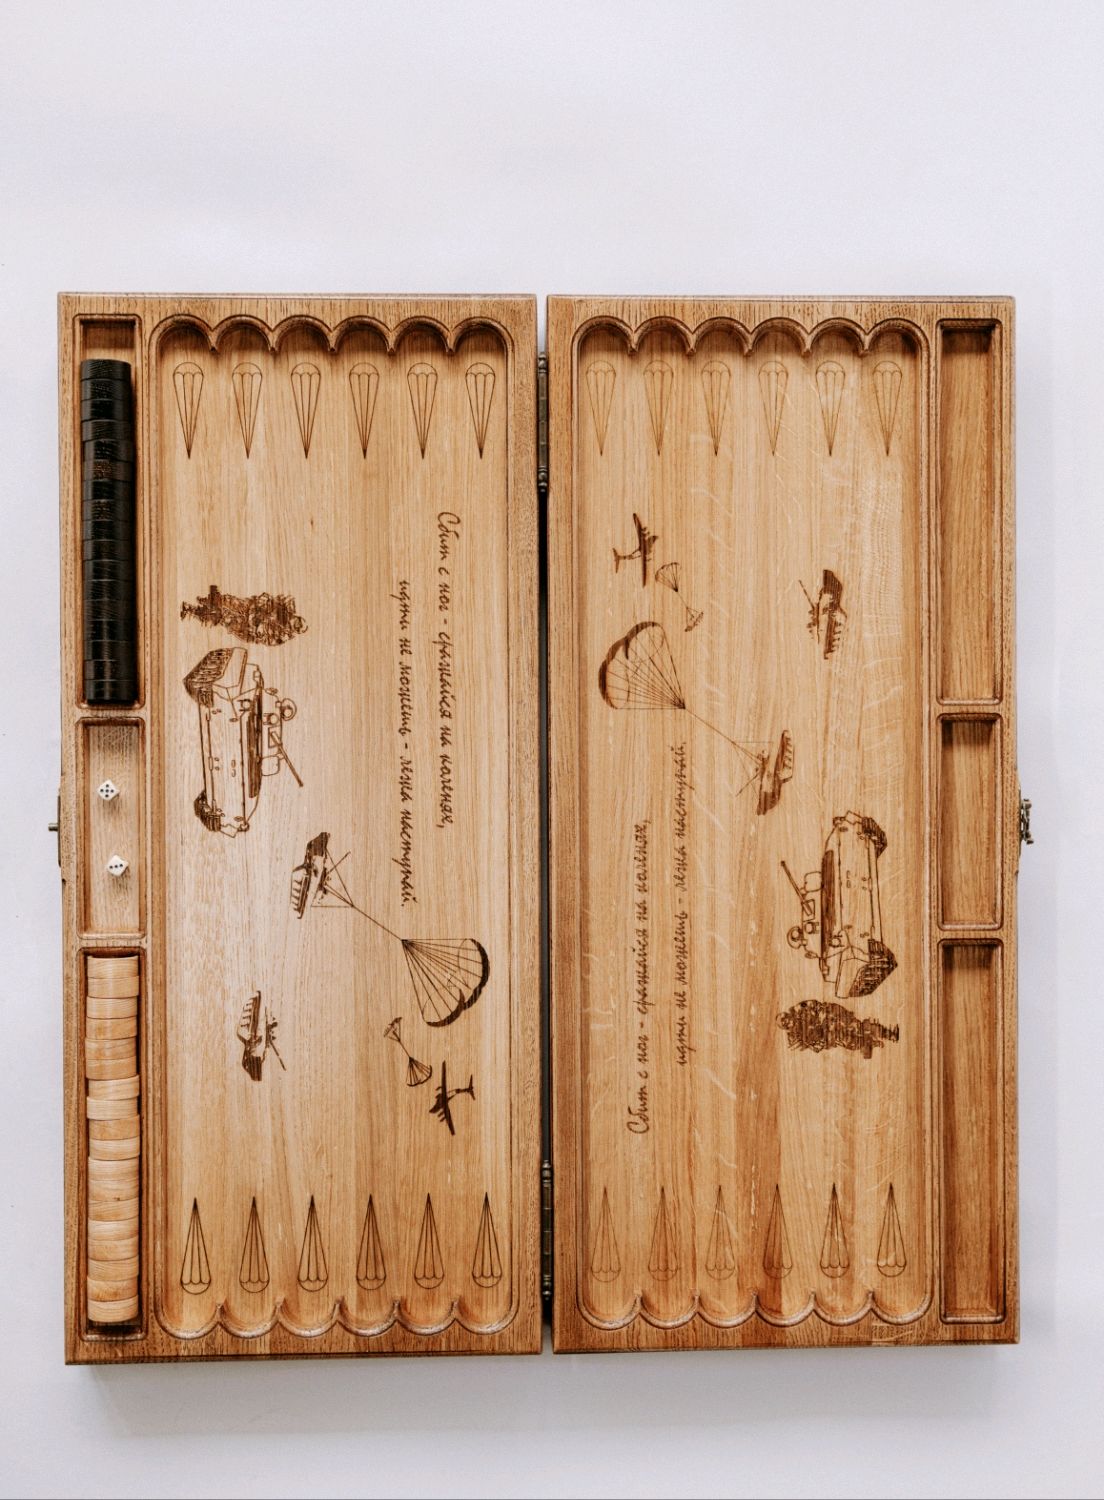 Сбит с ног - сражайся на коленях,
идти не можешь - лёжа наступай.
Сбит с ног - сражайся на коленях,
идти не можешь - лёжа наступай.